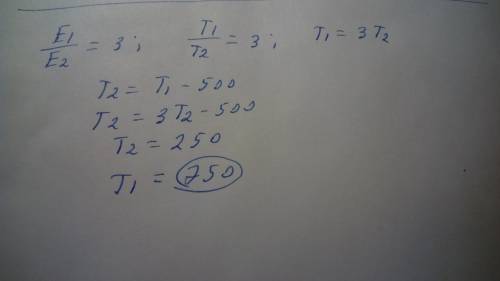 E1/E2 = 3; T1/T2 = 3; T1 = 3T2
T2 = T1 - 500
T2 = 3T2 - 500
T2 = 250
T1 = 750